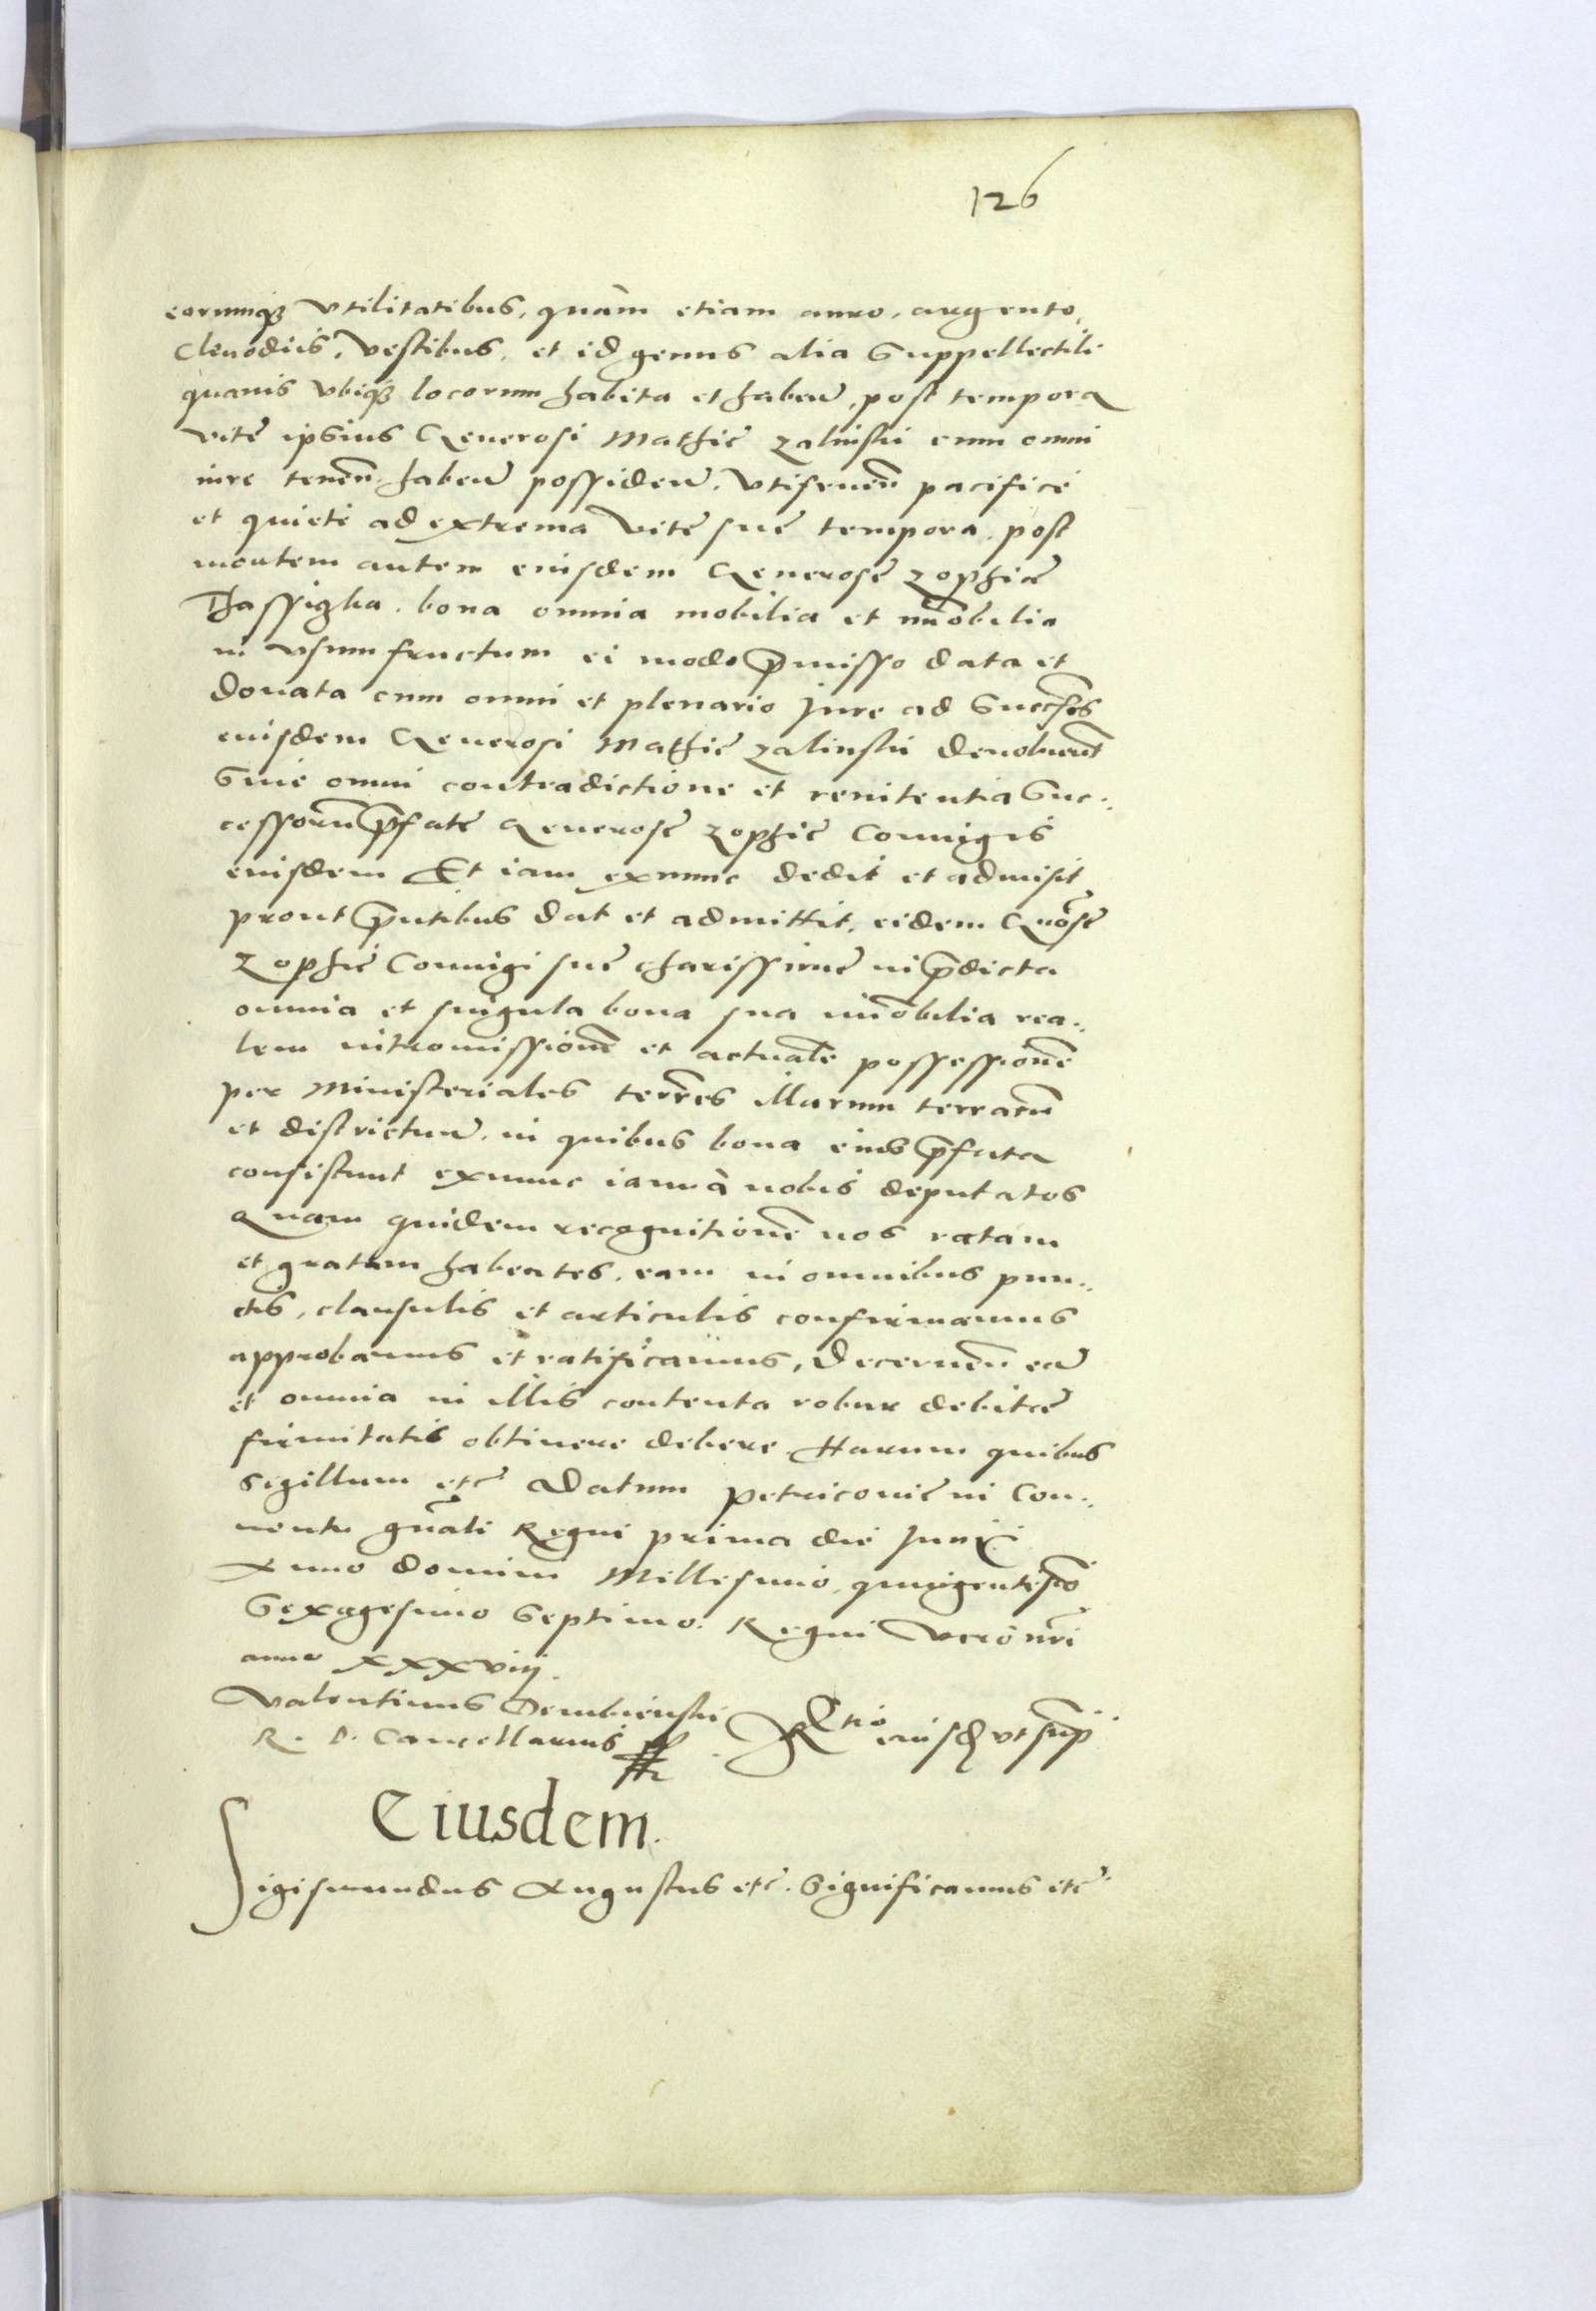 126
eorumq₃ vtilitatibus, quàm etiam auro, argento,
Clenodiis, vestibus, et id genus alia Suppellectili
quauis vbiq₃ locorum habita et haben̄, post tempora
vitę ipsius Generosi Mathię Zalinskii cum omni
iure tenen̄, haben̄ possiden̄, vtifruen̄ pacificè
et quietè ad extrema vitę suę tempora, post
mortem autem eiusdem Generosę Zophię
bona omnia mobilia et im̄obilia
in vsumfructum ei modo p̄misso data et
donata cum omni et plenario Jure ad Success̄es
eiusdem Generosi Mathię Zalinskii deuoluent̄
Sine omni contradictione et renitentia Suc⸗
cessorū p̄fatę Generosę Zophię Coniugis
eiusdem Et iam exnunc dedit et admisit
prout p̄ntibus dat et admittit, eidem Gn̄osę
Zophię Coniugi suę charissimę in p̄dicta
omnia et singula bona sua im̄obilia rea⸗
lem intromissionē et actualē possessionē
per Ministeriales terr̄es illarum terrarū
et districtuū, in quibus bona eius p̄fata
consistunt exnunc iam à nobis deputatos
Quam quidem recognitionē nos ratam
et gratam habentes, eam in omnibus pun⸗
ctis, clausulis et articulis confirmamus
approbamus et ratificamus, decernen̄ eā
et omnia in illis contenta robur debitę
firmitatis obtinere debere. Harum quibus
sigillum etc̄ Datum Petricouię in Con⸗
uentu gn̄ali Regni prima die Junii
Anno domini Millesimo, quingentesīo
Sexagesimo Septimo. Regni verò nr̄i
anno xxxviij.
Valentinus Dembienski
R. P. Cancellarius
R̄tio eiusd̄ vt sup̄
Eiusdem.
Sigismundus Augustus etc̄. Significamus etc̄